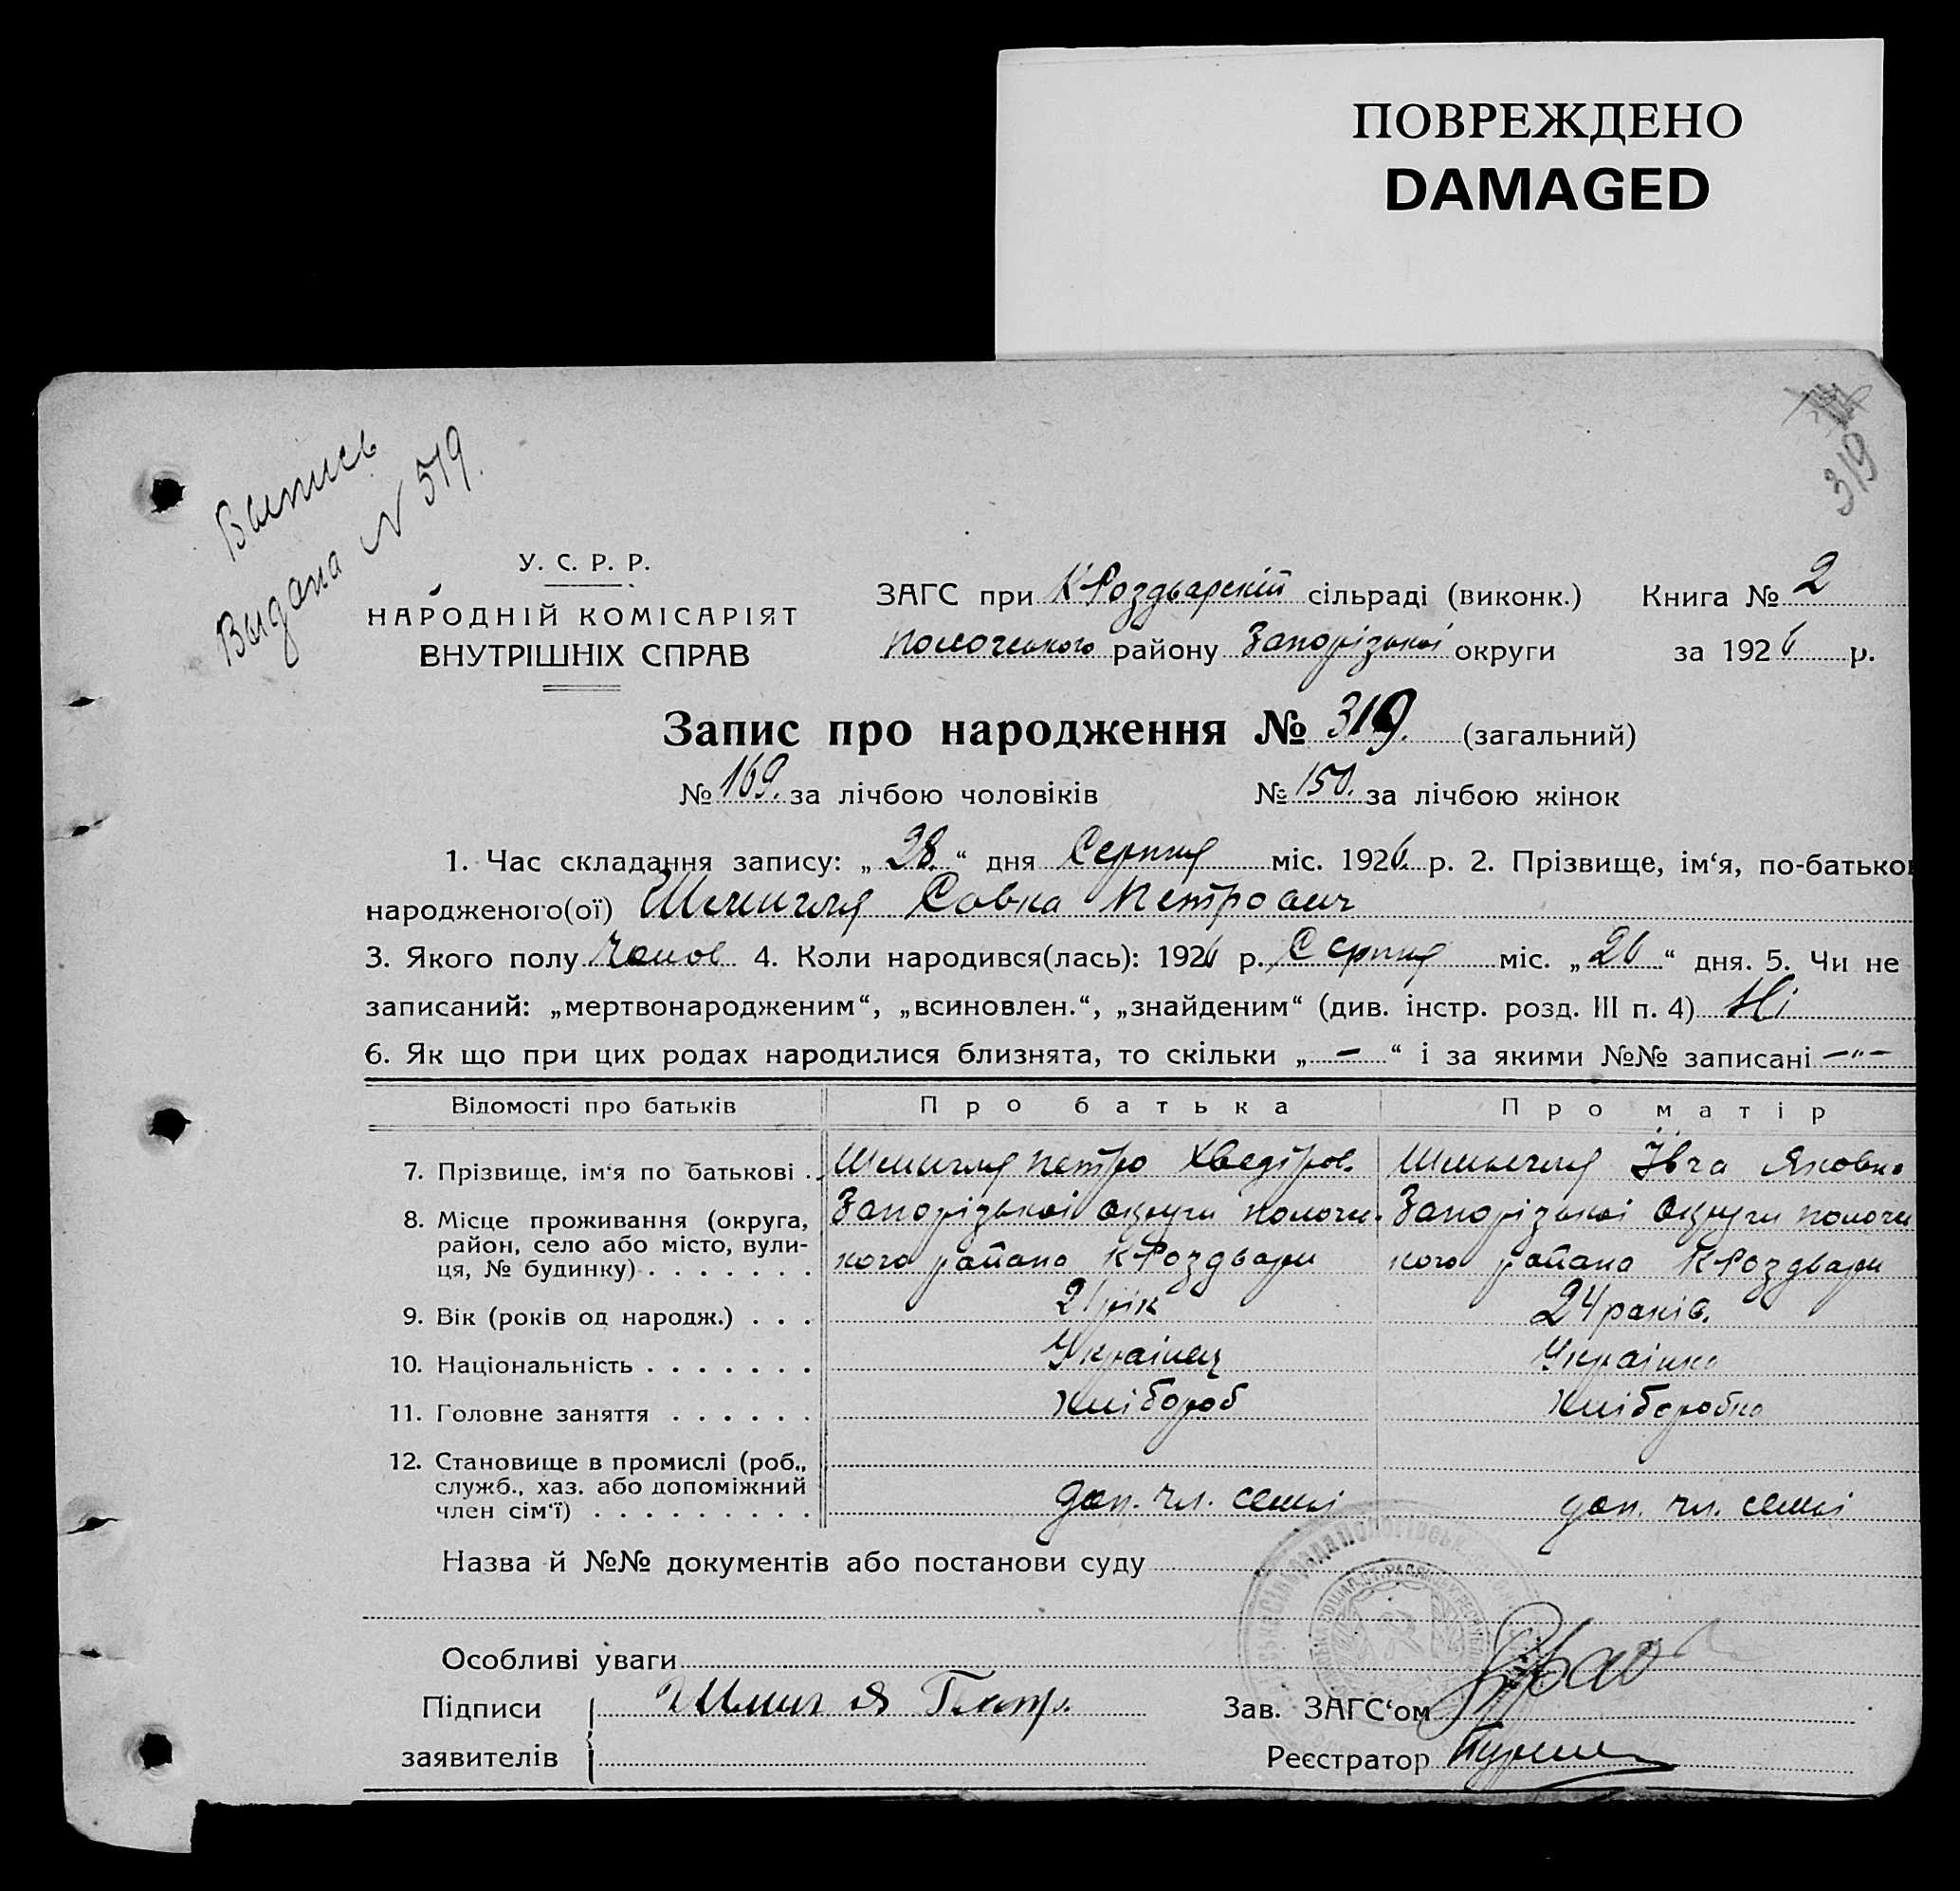 ПОВРЕЖДЕНО
DAMAGED
319
Выпись
Выдана N 519.
У. С. Р. Р.
НАРОДНІЙ КОМІСАРІЯТ
ВНУТРІШНІХ СПРАВ
ЗАГС при К Роздварскій сільраді (виконк.) Книга № 2
району Запорізької округи за 1926 р.
Запис про народження № 319. (загальний)
№ 169. за лічбою чоловіків № 150. за лічбою жінок
1. Час складання запису: „28“ дня Серпня міс. 1926 р. 2. Прізвище, ім‘я, по-батько
народженого(ої) Савка Петрович
3. Якого полу чолов 4. Коли народився(лась): 1926 р. Серпня міс. „26“ дня. 5. Чи не
записаний: „мертвонародженим“, „всиновлен.“, „знайденим“ (див. інстр. розд. III п. 4) Ні
6. Як що при цих родах народилися близнята, то скільки „-“ і за якими №№ записані -"-
Відомості про батьків Про батька Про матір
7. Прізвище, ім‘я по батькові . Петро Хведіров. Івга Яковна
8. Місце проживання (округа, Запорізької округи Запорізької округи
район, село або місто, вули- кого района К Роздвари кого района К Роздвари
ця, № будинку) . . . . . . .
9. Вік (років од народж.) . . . 21 рік 24 років.
10. Національність . . . . . . . Українец Українка
11. Головне заняття . . . . . . Хлібороб Хліборобка
12. Становище в промислі (роб.,
служб., хаз. або допоміжний
член сім‘ї) . . . . . . . . . доп. чл. семьі доп. чл. семьі
Назва й №№ документів або постанови суду
Особливі уваги
Підписи Петр. Зав. ЗАГС‘ом
заявителів Реєстратор